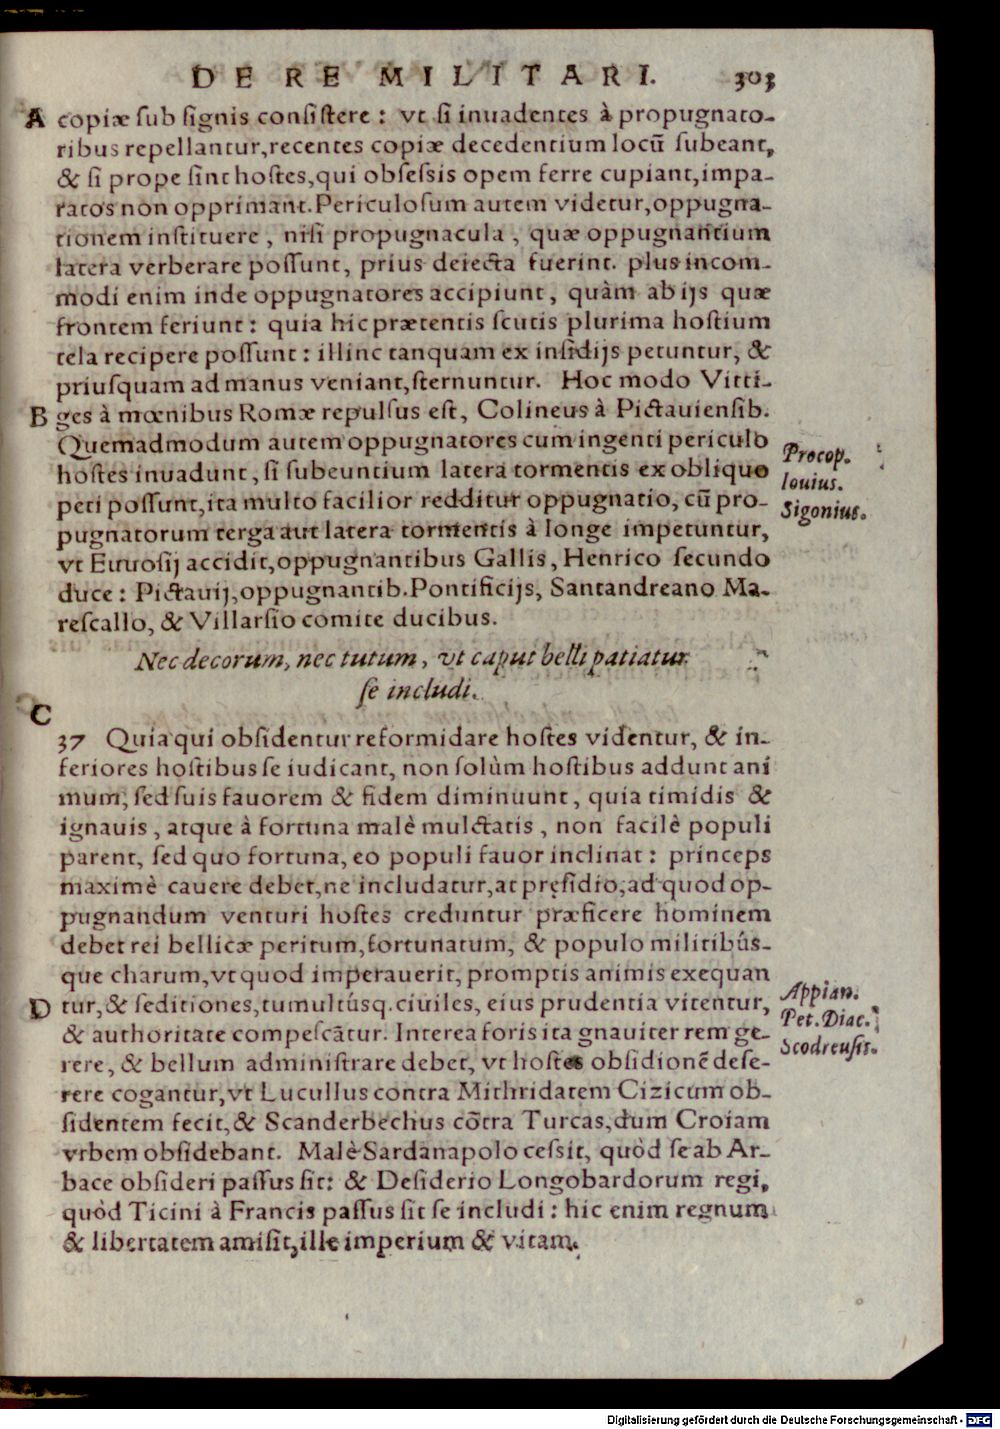 DE RE MILITARI. 303
A copiæ sub signis consistere : vt si inuadentes à propugnato-
ribus repellantur, recentes copiæ decedentium locū subeant,
& si prope sint hostes, qui obsessis opem ferre cupiant, impa-
ratos non opprimant. Periculosum autem videtur, oppugna-
tionem instituere , nisi propugnacula , quæ oppugnantium
latera verberare possunt, prius deiecta fuerint. plus incom-
modi enim inde oppugnatores accipiunt, quàm ab ijs quæ
frontem feriunt : quia hic prætentis scutis plurima hostium
tela recipere possunt : illinc tanquam ex insidijs petuntur, &
priusquam ad manus veniant, sternuntur. Hoc modo Vitti-
B ges à mœnibus Romæ repulsus est, Colineus à Pictauiensib.
Quemadmodum autem oppugnatores cum ingenti periculo
hostes inuadunt, si subeuntium latera tormentis ex obliquo
peti possunt, ita multo facilior redditur oppugnatio, cū pro-
pugnatorum terga aut latera tormentis à longe impetuntur,
vt accidit, oppugnantibus Gallis, Henrico secundo
duce : Pictauij, oppugnantib. Pontificijs, Santandreano Ma-
rescallo, & Villarsio comite ducibus.
Procop.
Iouius.
Sigonius.
Nec decorum, nec tutum, vt caput belli patiatur
se includi.
C
37 Quia qui obsidentur reformidare hostes videntur, & in-
feriores hostibus se iudicant, non solùm hostibus addunt ani
mum, sed suis fauorem & fidem diminuunt, quia timidis &
ignauis , atque à fortuna malè mulctatis , non facilè populi
parent, sed quo fortuna, eo populi fauor inclinat : princeps
maximè cauere debet, ne includatur, at pręsidio, ad quod op-
pugnandum venturi hostes creduntur præficere hominem
debet rei bellicæ peritum, fortunatum, & populo militibús-
que charum, vt quod imperauerit, promptis animis exequan
D tur, & seditiones, tumultúsq. ciuiles, eius prudentia vitentur,
& authoritate compescātur. Interea foris ita gnauiter rem ge-
rere, & bellum administrare debet, vt hostes obsidionē dese-
rere cogantur, vt Lucullus contra Mithridatem Cizicum ob-
sidentem fecit, & Scanderbechus cōtra Turcas, dum Croiam
vrbem obsidebant. Malè Sardanapolo cessit, quòd se ab Ar-
bace obsideri passus sit : & Desiderio Longobardorum regi,
quòd Ticini à Francis passus sit se includi : hic enim regnum
& libertatem amisit, ille imperium & vitam.
Appian.
Pet. Diac.
Scodrensis.
Digitalisierung gefördert durch die Deutsche Forschungsgemeinschaft - DFG